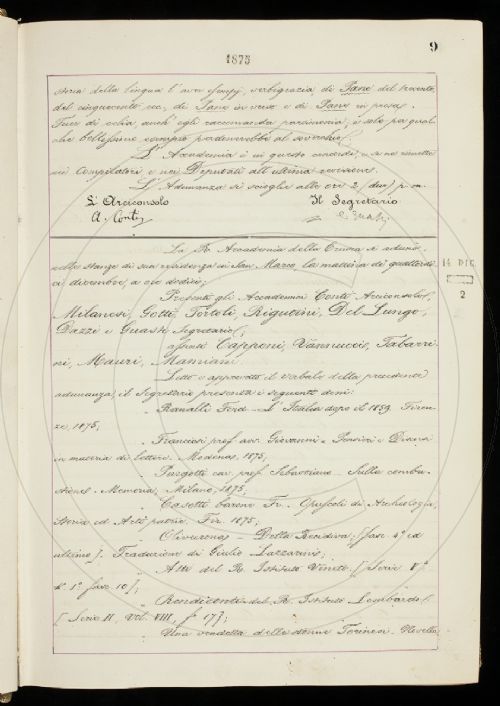 9
1875
storia della lingua l'aver esempj, verbigrazia di Pane del trecento,
del cinquecento ec., di Pane in verso e di Pane in prosa.
Fuor di celia, anch'egli raccomanda parcimonia, e solo per qual
che bellissimo esempio perdonerebbe al soverchio.
L'Accademia è in questo concorde, e se ne rimette
ai Compilatori e ai Deputati all'ultima revisione.
L'Adunanza si scioglie alle ore 2 (due) p. m.
L'Arciconsolo Il Segretario
A. Conti C. Guasti
La R. Accademia della Crusca si aduna
nelle stanze di sua residenza in San Marco la mattina de' quattordi
ci dicembre, a ore dodici;
14 DIC.
2
Presenti gli Accademici Conti Arciconsolo,
Milanesi, Gotti, Tortoli, Rigutini, Del Lungo,
Dazzi e Guasti Segretario;
assenti Capponi, Vannucci, Tabarri-
ni, Mauri, Mamiani.
Letto e approvato il verbale della precedente
adunanza, il Segretario presenta i seguenti doni:
Ranalli Ferd. - L'Italia dopo il 1859. Firen-
ze, 1875;
Franciosi prof. avv. Giovanni - Pensieri e Discorsi
in materia di lettere. Modena, 1875;
Purgotti cav. prof. Sebastiano - Sulla combu-
stione - Memoria; Milano, 1875;
Casotti barone Fr. - Opuscoli di Archeologia,
Storia ed Arti patrie. Fir. 1875;
Della Recidiva; [fasc. 4° ed
ultimo]. Traduzione di Giulio Lazzarini;
Atti del R. Istituto Veneto [Serie V,
t. 1°, fasc. 10];
Rendiconti del R. Istituto Lombardo
[Serie II, Vol. VIII, f. 17];
Una vendetta delle donne Torinesi - Novella